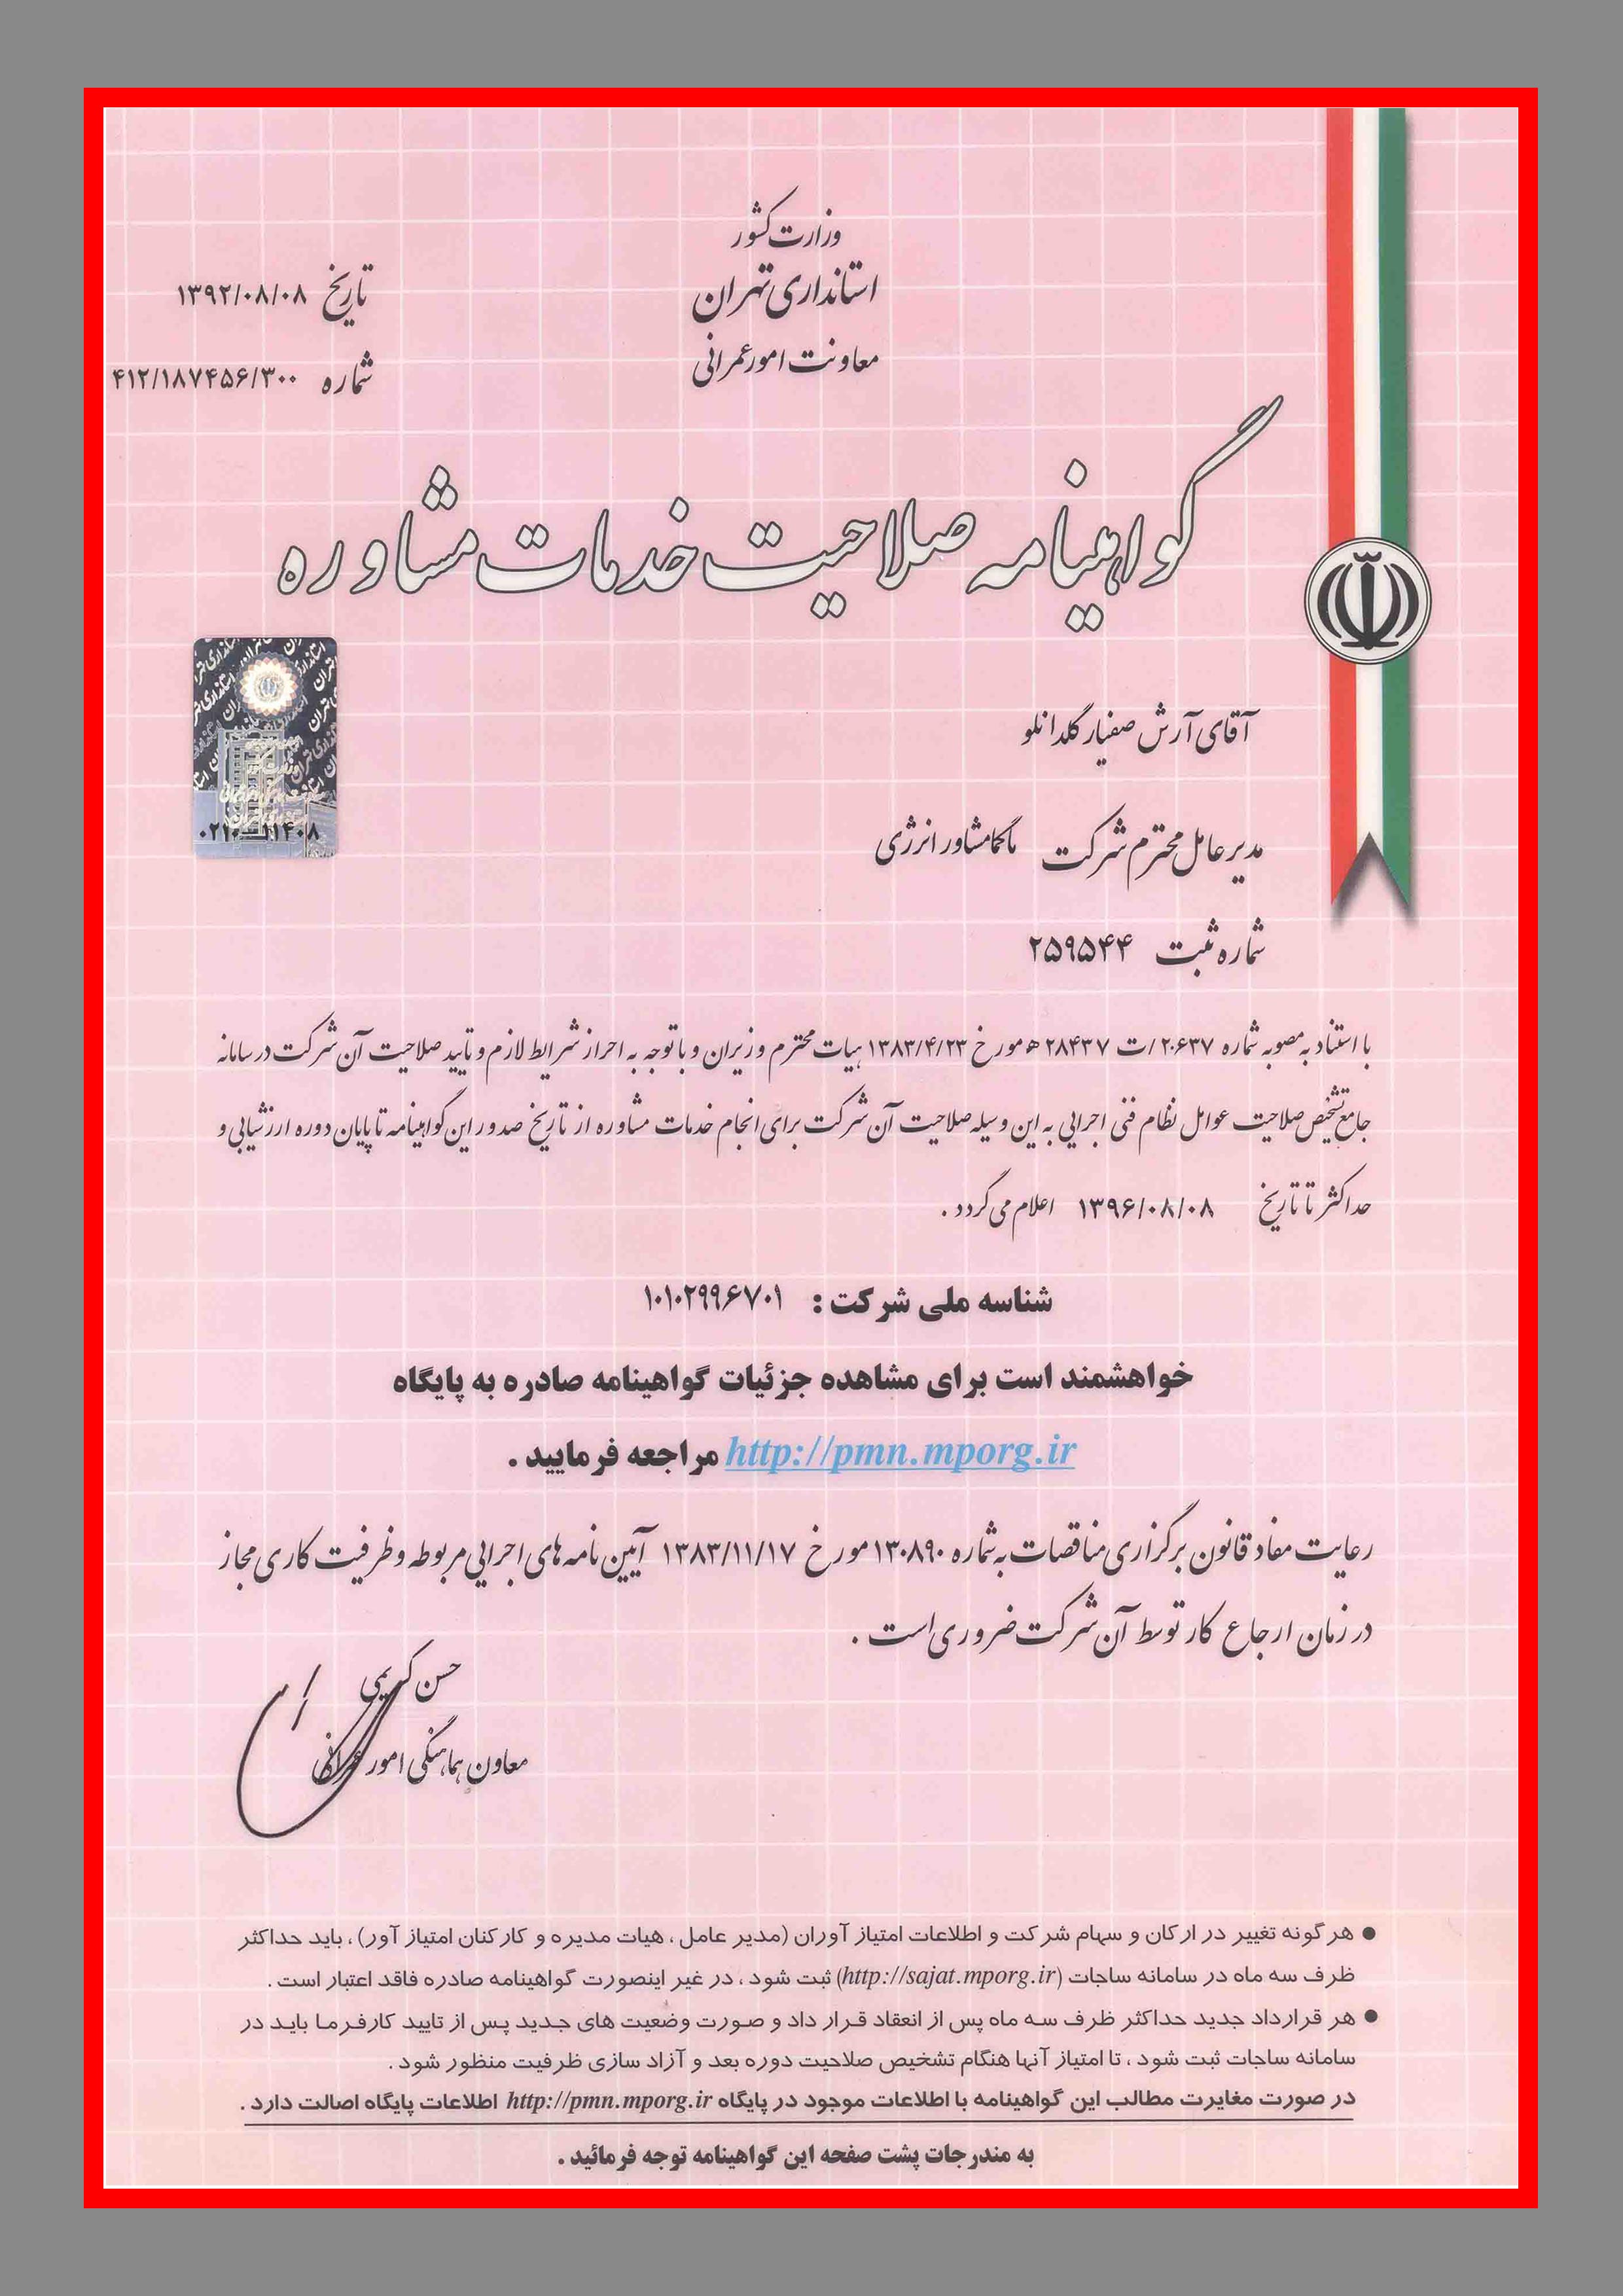 وزارت کشور
استانداری تهران
معاونت امور عمرانی
تاریخ ۱۳۹۲/۰۸/۰۸
شماره ۴۱۲/۱۸۷۴۵۶/۳۰۰
گواهینامه صلاحیت خدمات مشاوره
۰۲۱۰ ۱۱۴۰۸
آقای آرش صفیار گلدانلو
مدیرعامل محترم شرکت ماگما مشاور انرژی
شماره ثبت ۲۵۹۵۴۴
با استناد به مصوبه شماره ۲۰۶۳۷/ت ۲۸۴۳۷ ه مورخ ۱۳۸۳/۴/۲۳ هیات محترم وزیران و با توجه به احراز شرایط لازم و تایید صلاحیت آن شرکت در سامانه
جامع تشخیص صلاحیت عوامل نظام فنی اجرایی به این وسیله صلاحیت آن شرکت برای انجام خدمات مشاوره از تاریخ صدور این گواهینامه تا پایان دوره ارزشیابی و
حداکثر تا تاریخ ۱۳۹۶/۰۸/۰۸ اعلام می گردد .
شناسه ملی شرکت : ۱۰۱۰۲۹۹۶۷۰۱
خواهشمند است برای مشاهده جزئیات گواهینامه صادره به پایگاه
http://pmn.mporg.ir مراجعه فرمایید .
رعایت مفاد قانون برگزاری مناقصات به شماره ۱۳۰۸۹۰ مورخ ۱۳۸۳/۱۱/۱۷ آیین نامه های اجرایی مربوطه و ظرفیت کاری مجاز
در زمان ارجاع کار توسط آن شرکت ضروری است .
حسن کریمی
معاون هماهنگی امور عمرانی
● هر گونه تغییر در ارکان و سهام شرکت و اطلاعات امتیاز آوران (مدیر عامل ، هیات مدیره و کارکنان امتیاز آور) ، باید حداکثر
ظرف سه ماه در سامانه ساجات (http://sajat.mporg.ir) ثبت شود ، در غیر اینصورت گواهینامه صادره فاقد اعتبار است .
● هر قرارداد جدید حداکثر ظرف سه ماه پس از انعقاد قرار داد و صورت وضعیت های جدید پس از تایید کارفرما باید در
سامانه ساجات ثبت شود ، تا امتیاز آنها هنگام تشخیص صلاحیت دوره بعد و آزاد سازی ظرفیت منظور شود .
در صورت مغایرت مطالب این گواهینامه با اطلاعات موجود در پایگاه http://pmn.mporg.ir اطلاعات پایگاه اصالت دارد .
به مندرجات پشت صفحه این گواهینامه توجه فرمائید .